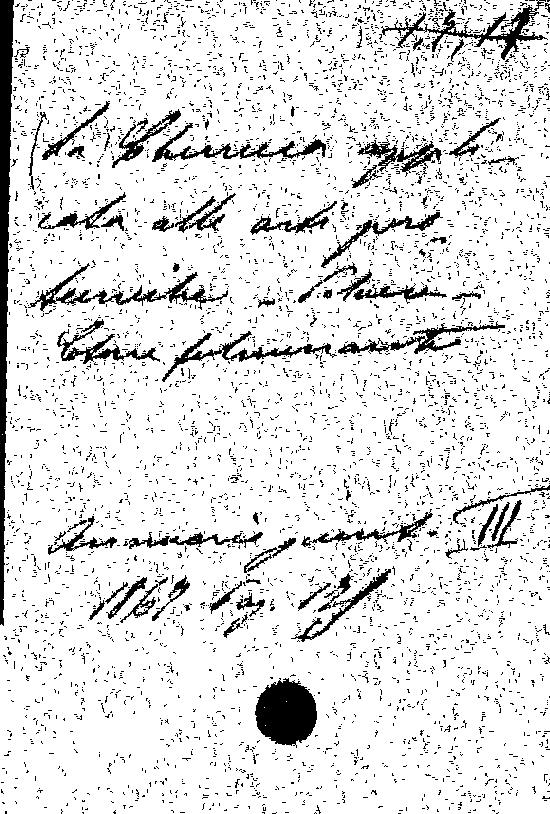 (La Chimica appli-
cata alle arti piro
tecniche - Polvere -
Cotone fulminante
Annuario scient. III
1867. Pag.